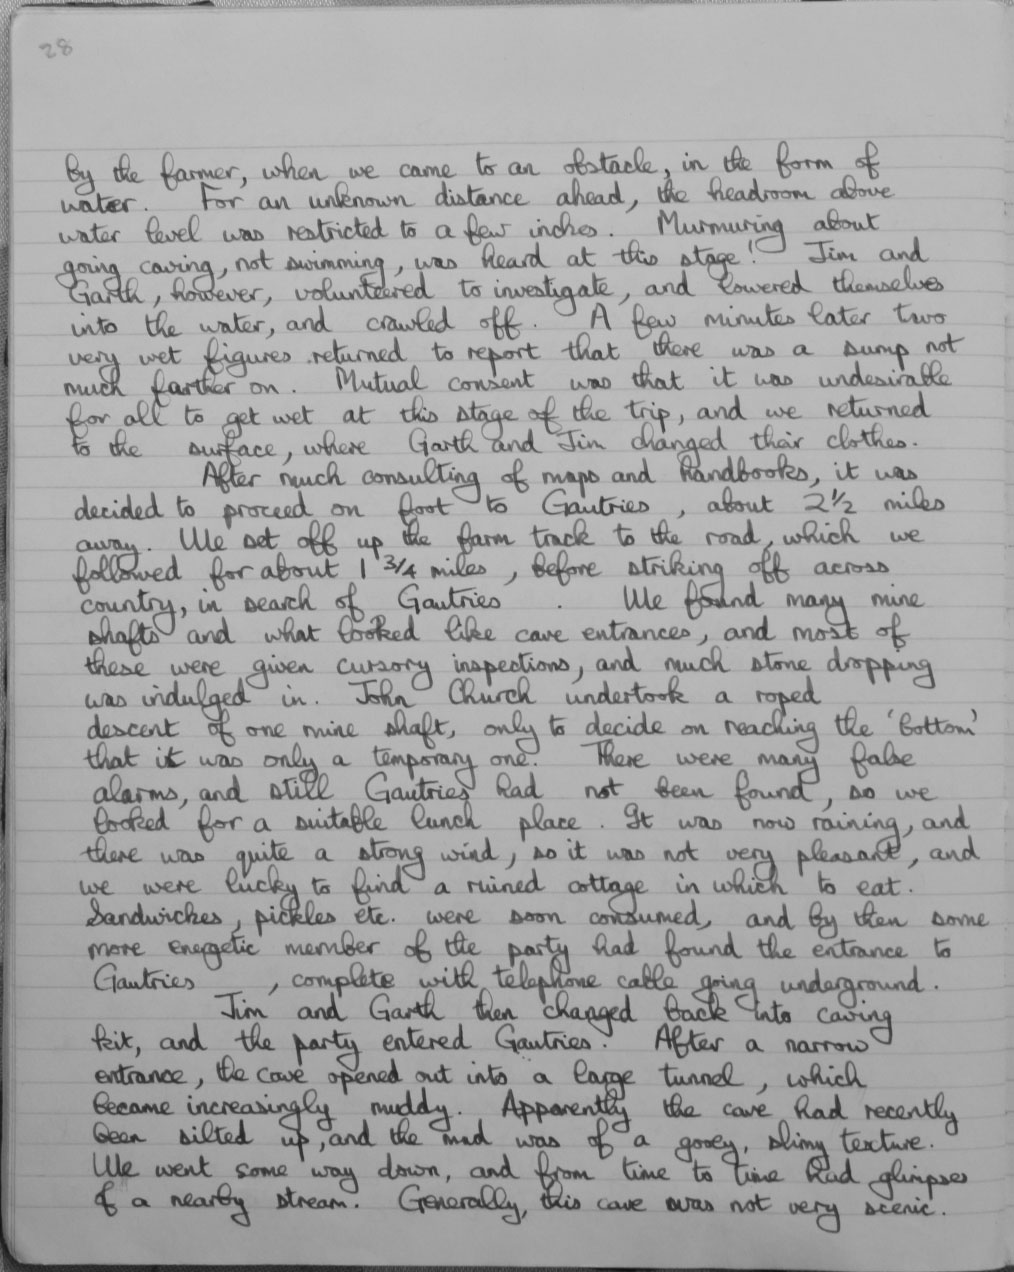 28
by the farmer, when we came to an obstacle, in the form of
water. For an unknown distance ahead, the headroom above
water level was restricted to a few inches. Murmuring about
going caving, not swimming, was heard at this stage! Jim and
Garth, however, volunteered to investigate, and lowered themselves
into the water, and crawled off. A few minutes later two
very wet figures returned to report that there was a sump not
much farther on. Mutual consent was that it was undesirable
for all to get wet at this stage of the trip, and we returned
to the surface, where Garth and Jim changed their clothes.
After much consulting of maps and handbooks, it was
decided to proceed on foot to Gautries, about 2 1/2 miles
away. We set off up the farm track to the road, which we
followed for about 1 3/4 miles, before striking off across
country, in search of Gautries. We found many mine
shafts and what looked like cave entrances, and most of
these were given cursory inspections, and much stone dropping
was indulged in. John Church undertook a roped
descent of one mine shaft, only to decide on reaching the 'bottom'
that it was only a temporary one. There were many false
alarms, and still Gautries had not been found, so we
looked for a suitable lunch place. It was now raining, and
there was quite a strong wind, so it was not very pleasant, and
we were lucky to find a ruined cottage in which to eat.
Sandwiches, pickles etc. were soon consumed, and by then some
more energetic member of the party had found the entrance to
Gautries, complete with telephone cable going underground.
Jim and Garth then changed back into caving
kit, and the party entered Gautries. After a narrow
entrance, the cave opened out into a large tunnel, which
became increasingly muddy. Apparently the cave had recently
been silted up, and the mud was of a gooey, slimy texture.
We went some way down, and from time to time had glimpses
of a nearby stream. Generally, this cave was not very scenic.